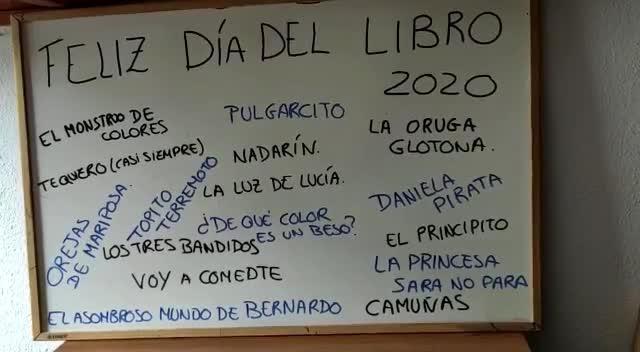 FELIZ DÍA DEL LIBRO
2020
EL MONSTRUO DE
COLORES
PULGARCITO
LA ORUGA
GLOTONA.
TEQUERO (CASI SIEMPRE)
NADARÍN.
LA LUZ DE LUCÍA.
DANIELA
PIRATA
OREJAS
DE MARIPOSA.
TOPITO
TERREMOTO
¿DE QUÉ COLOR
ES UN BESO?
EL PRINCIPITO
LOS TRES BANDIDOS
VOY A COMEDTE
LA PRINCESA
SARA NO PARA
EL ASOMBROSO MUNDO DE BERNARDO
CAMUÑAS